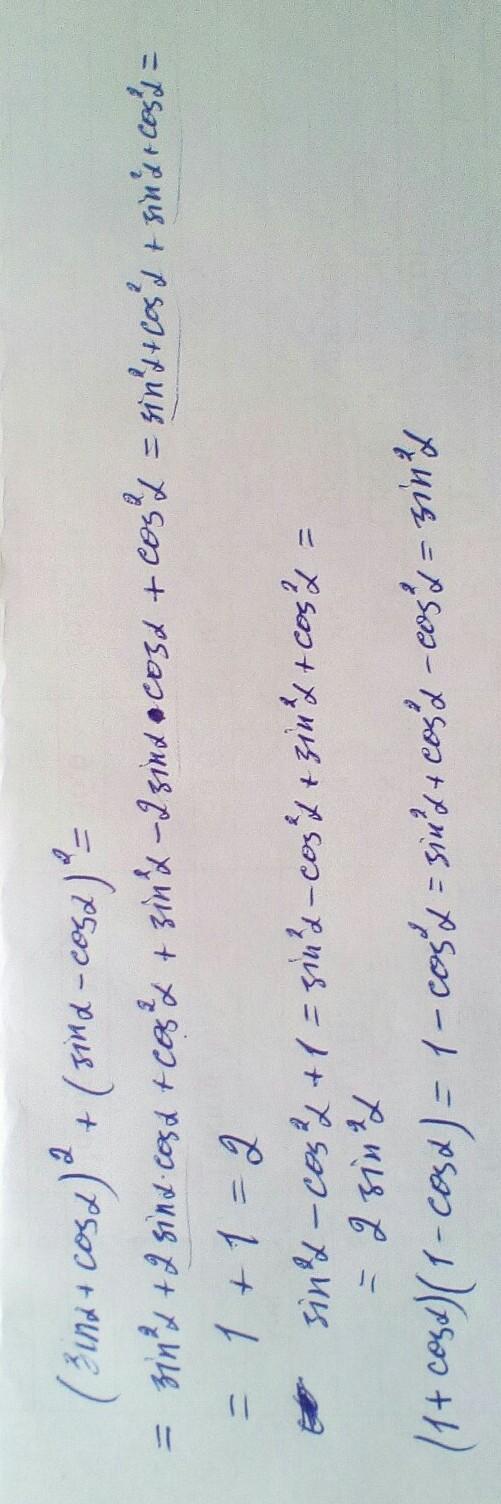 (sinα + cosα)² + (sinα - cosα)² =
= sin²α + 2 sinα · cosα + cos²α + sin²α - 2 sinα · cosα + cos²α = sin²α + cos²α + sin²α + cos²α =
= 1 + 1 = 2
sin²α - cos²α + 1 = sin²α - cos²α + sin²α + cos²α =
= 2 sin²α
(1 + cosα)(1 - cosα) = 1 - cos²α = sin²α + cos²α - cos²α = sin²α